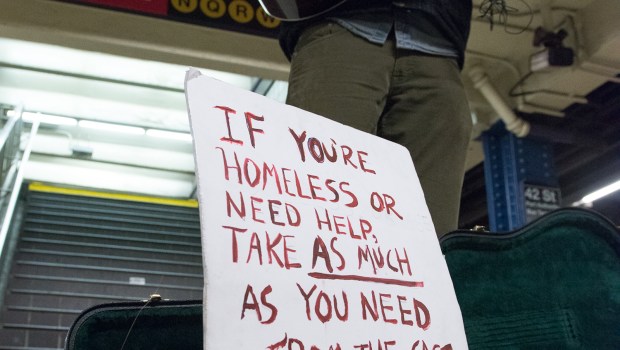 N Q R W
42 ST
IF YOU'RE
HOMELESS OR
NEED HELP,
TAKE AS MUCH
AS YOU NEED
FROM THE